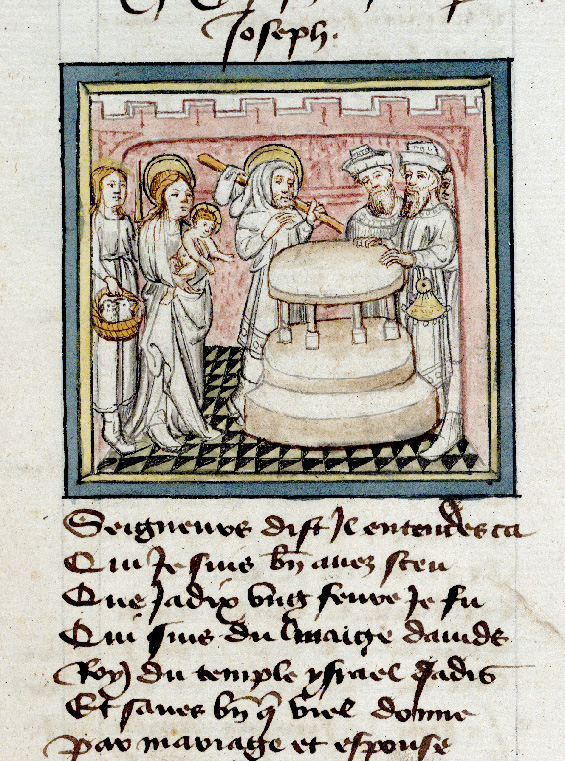 Joseph.
Seigneurs dist Il entendes ca
Qui Je suis bn̄ auez sceu
Que Jadix vng feure Je fu
Qui suis du lmaige dauids
Roy du temple ysrael Jadis
Et saues bn̄ q̄ viel donne
par mariage et espouse